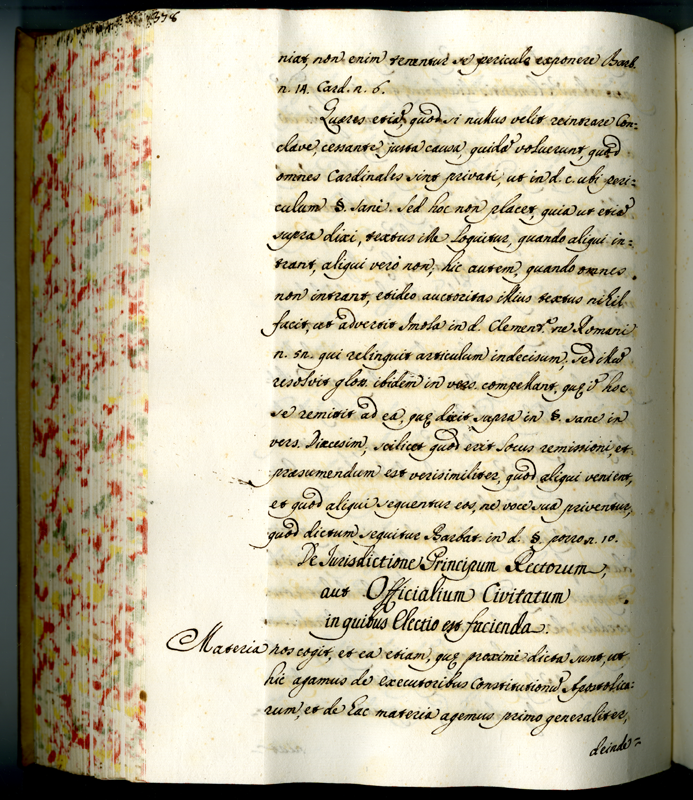 378
niat, non enim tenentur se periculo exponere Barb.
n. 14. Card. n. 6.
Quæres etiã, quod si nullus velit reintrare Con=
clave, cessante justa causa, quidã voluerunt, quod
omnes Cardinales sint privati, ut in d. c. ubi peri=
culum §. sane. Sed hoc non placet, quia ut etiã
supra dixi, textus ille loquitur, quando aliqui in=
trant, aliqui verò non, hic autem, quando omnes
non intrant, et ideo auctoritas illius textus nihil
facit, ut advertit Imola in d. Clement. ne Romani
n. 5n. qui relinquit articulum indecisum, Sed illũ
resolvit glos. ibidem in vers. compellant, quę iñ hoc
se remittit ad ea, quę dicit supra in §. sane in
vers. Diæcesim, scilicet quod erit locus remissioni, et
præsumendum est verisimiliter, quod aliqui venient,
et quod aliqui sequentur eos, ne voce sua priventur,
quod dictum sequitur Barbat. in d. §. porro n. 10.
De Jurisdictione Principum Rectorum,
aut Officialium Civitatum
in quibus Electio est facienda.
Materia nos cogit, et ea etiam, quę proxime dicta sunt, ut
hic agamus de executoribus Constitutionũ Apostolica=
rum, et de hac materia agemus primo generaliter,
deinde=